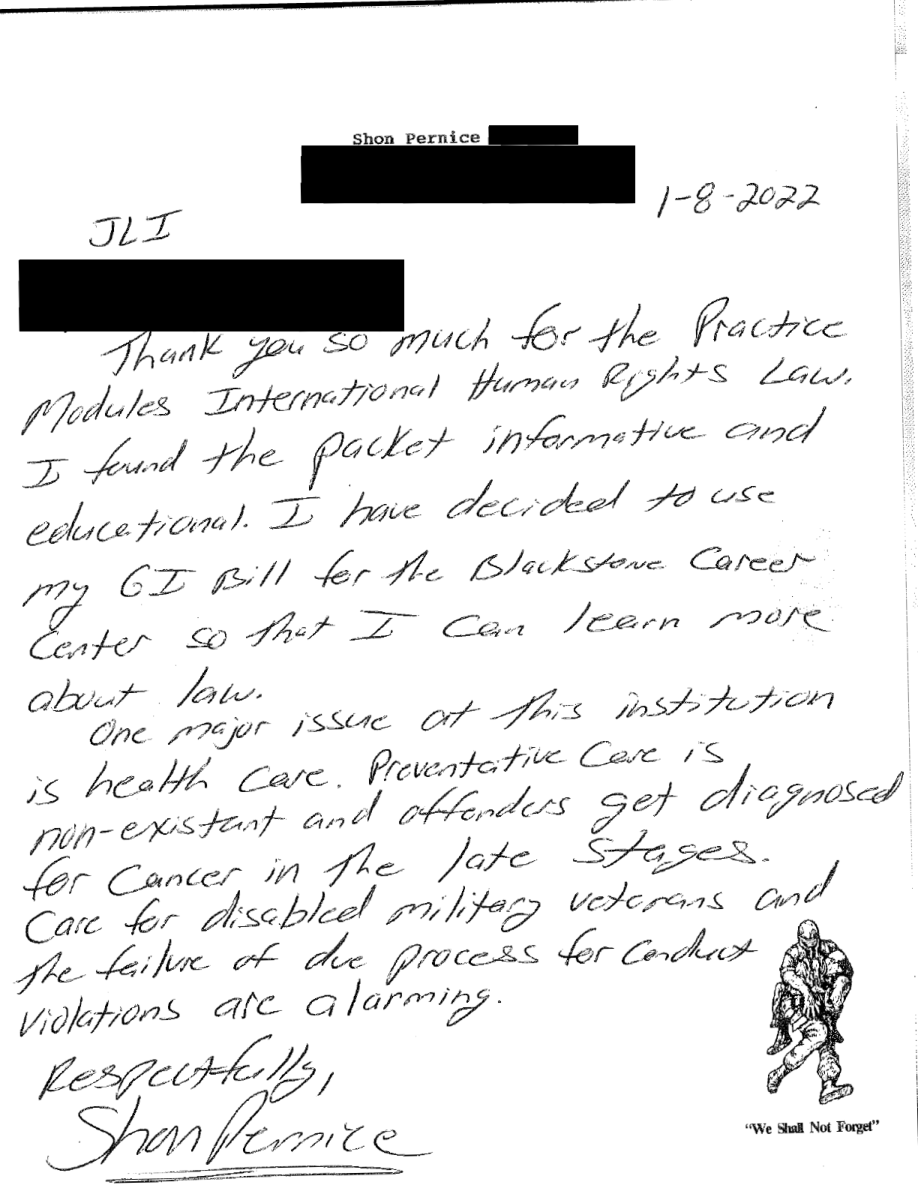 Shon Pernice
1-8-2022
JLI
Thank you so much for the Practice
Modules International Human Rights Law.
I found the packet informative and
educational. I have decided to use
my GI Bill for the Blackstone Career
Center so that I can learn more
about law.
One major issue at this institution
is health care. Preventative Care is
non-existant and offenders get diagnosed
for Cancer in the late stages.
Care for disabled military veterans and
the failure of due process for Conduct
Violations are alarming.
Respectfully,
Shon Pernice
"We Shall Not Forget"